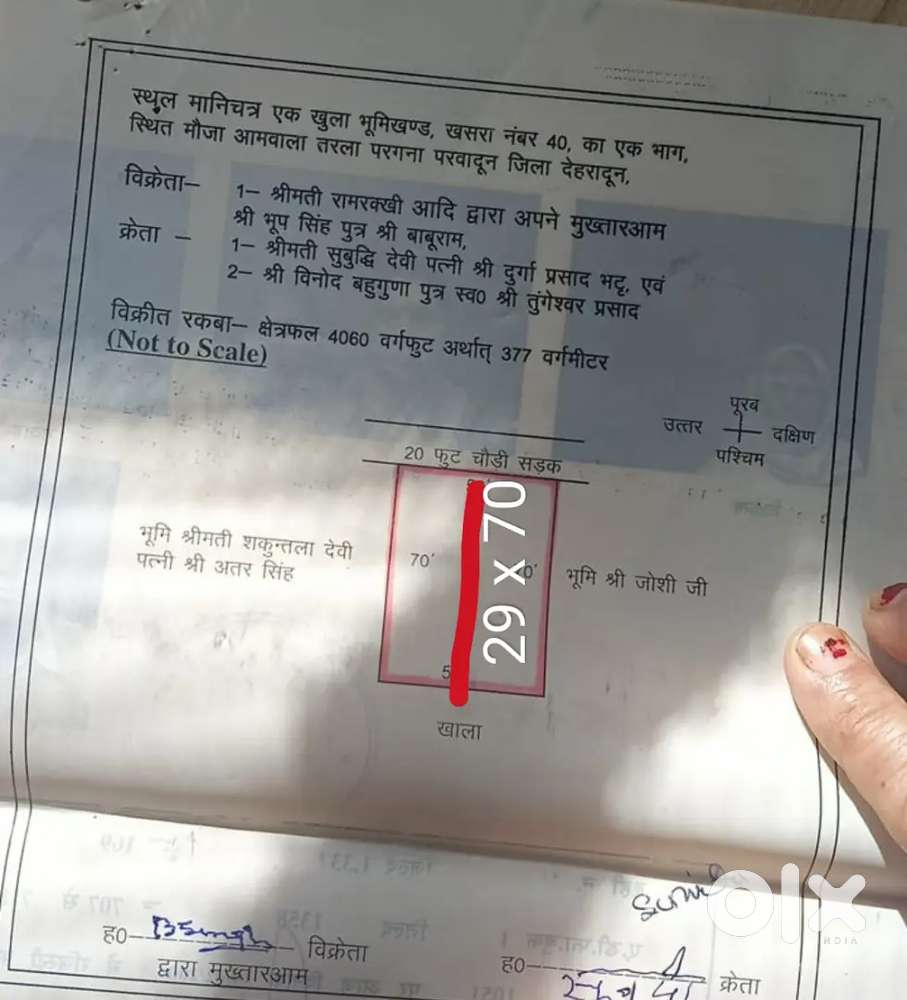 स्थुल मानिचत्र एक खुला भूमिखण्ड, खसरा नंबर 40, का एक भाग,
स्थित मौजा आमवाला तरला परगना परवादून जिला देहरादून,
विक्रेता– 1– श्रीमती रामरक्खी आदि द्वारा अपने मुख्तारआम
श्री भूप सिंह पुत्र श्री बाबूराम,
क्रेता – 1– श्रीमती सुबुद्धि देवी पत्नी श्री दुर्गा प्रसाद भट्ट, एवं
2– श्री विनोद बहुगुणा पुत्र स्व0 श्री तुंगेश्वर प्रसाद
विक्रीत रकबा– क्षेत्रफल 4060 वर्गफुट अर्थात् 377 वर्गमीटर
(Not to Scale)
पूरब
उत्तर दक्षिण
पश्चिम
20 फुट चौड़ी सड़क
भूमि श्रीमती शकुन्तला देवी
पत्नी श्री अतर सिंह
70'
29 x 70
भूमि श्री जोशी जी
खाला
olx
INDIA
ह0– BSingh विक्रेता
द्वारा मुख्तारआम
ह0– क्रेता